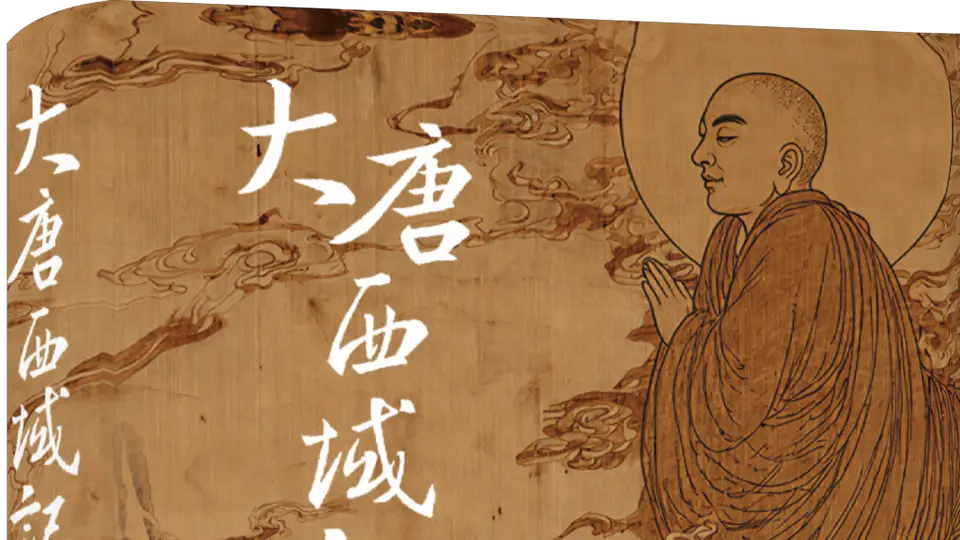 大唐西域
大唐西域記